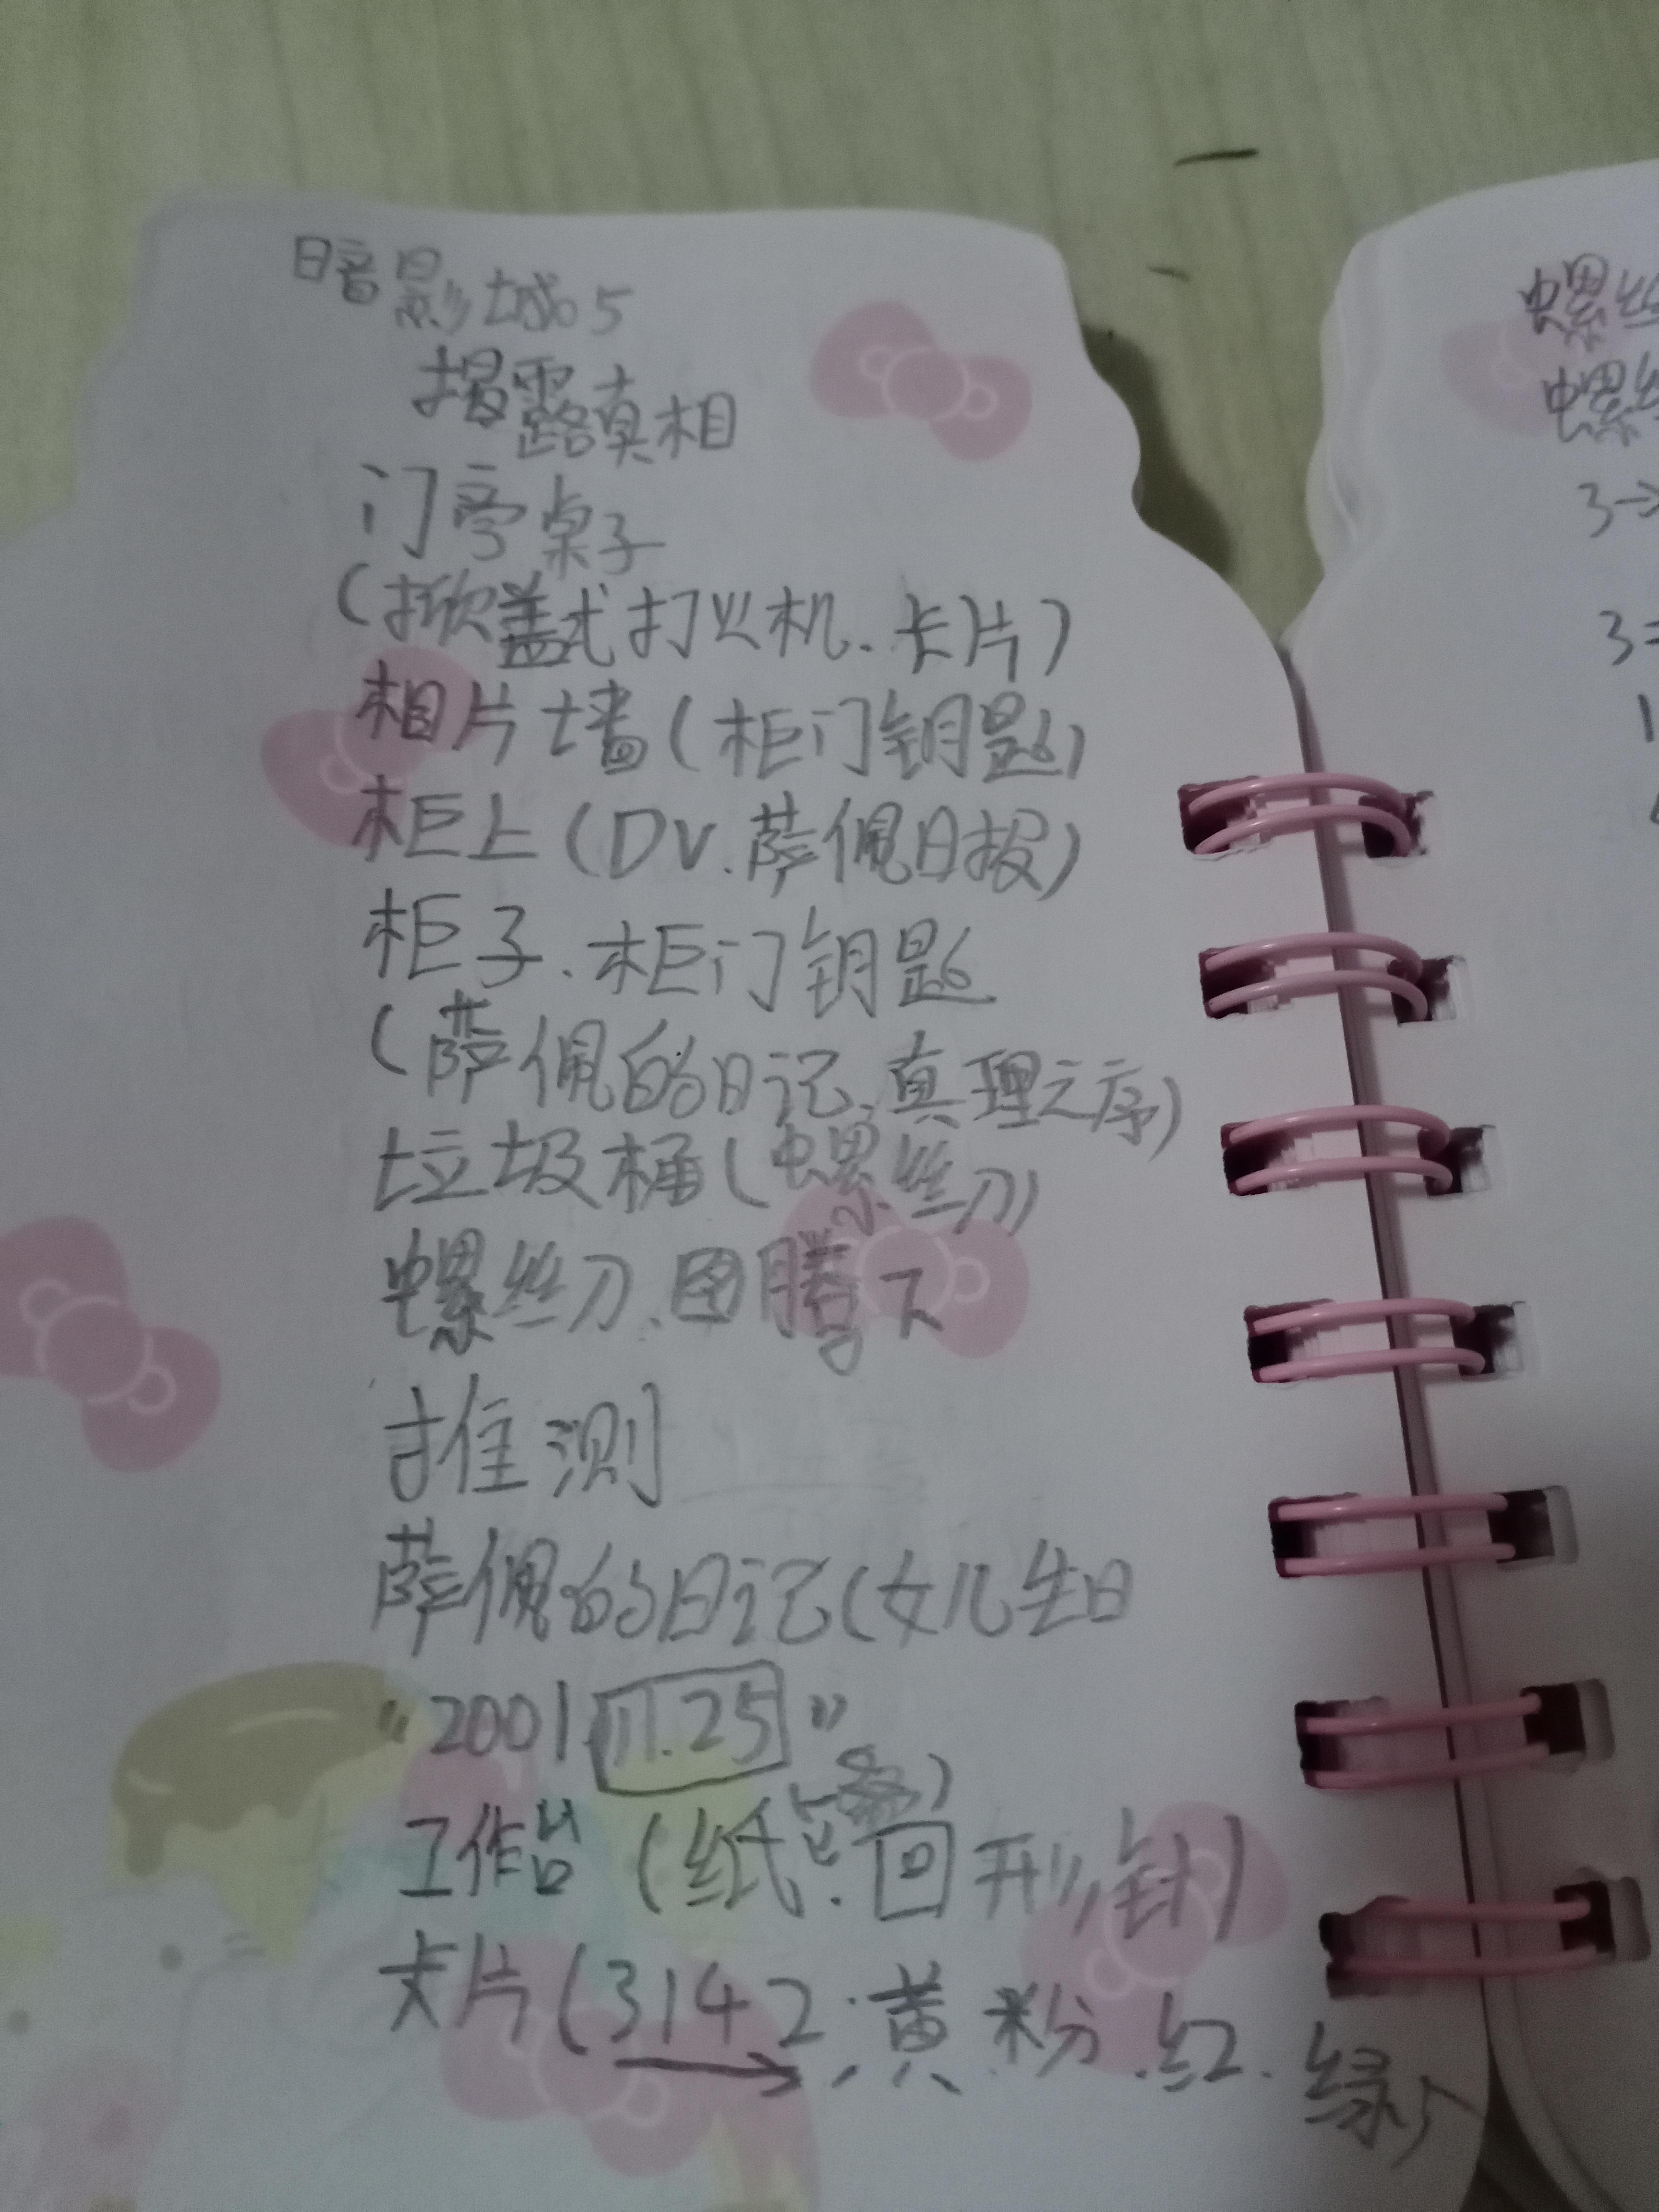 暗影城5
揭露真相
门旁桌子
(掀盖式打火机.卡片)
相片墙(柜门钥匙)
柜上(DV.萨佩日报)
柜子.柜门钥匙
(萨佩的日记.真理之序)
垃圾桶(螺丝刀)
螺丝刀.图腾下
推测
萨佩的日记(女儿生日
"2001 11.25"
一叠)
工作台(纸.回形针)
卡片(3142.黄.粉.红.绿)
螺丝
螺丝
3→
3=
1